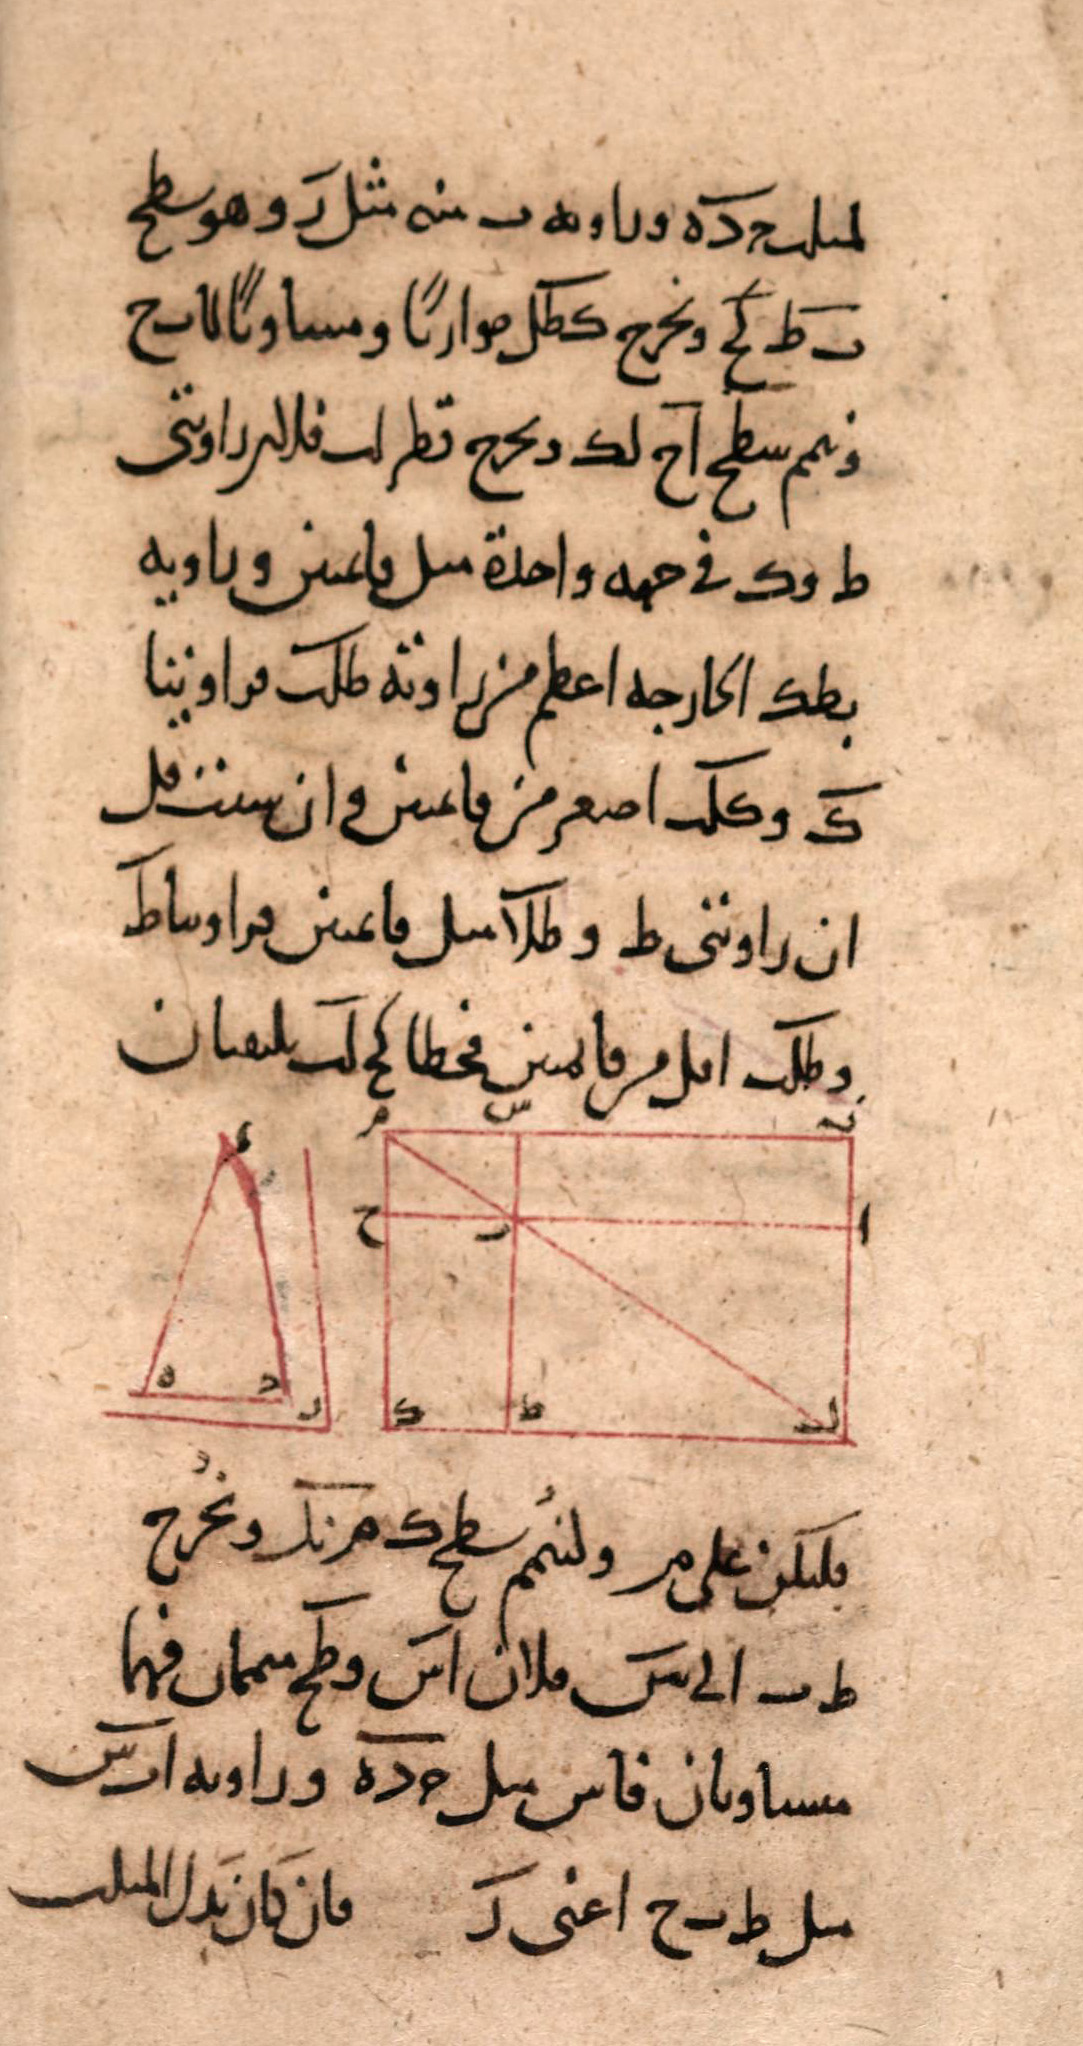 لمثلث جده وزاوية ب منه مثل ر وهو سطح
ب ط ك ح ونخرج كطل موازيًا ومساويًا لاب ح
ونتم سطح اح لك ونخرج قطر لب فلان زاويتى
ط وك فى جهة واحدة مثل قائمتين وزاوية
بطك الخارجة اعظم من زاوية طلب فزاويتا
ك وكلب اصغر من قائمتين وان شئت قل
ان زاويتى ط و طلا مثل قائمتين فزاويتا ط
وطلب اقل من قائمتين فخطا كح لب يلتقيان
ن س م
ح ب ا
ح
ه د ر
ك ط ل
فليكن على م ولنتم سطح ك م ن ل ونخرج
ط ب الى س فلان اس وطح متممان فهما
متساويان فاس مثل جده وزاوية ا ب س
مثل ط ب ح اعنى ر فان كان بدل المثلث